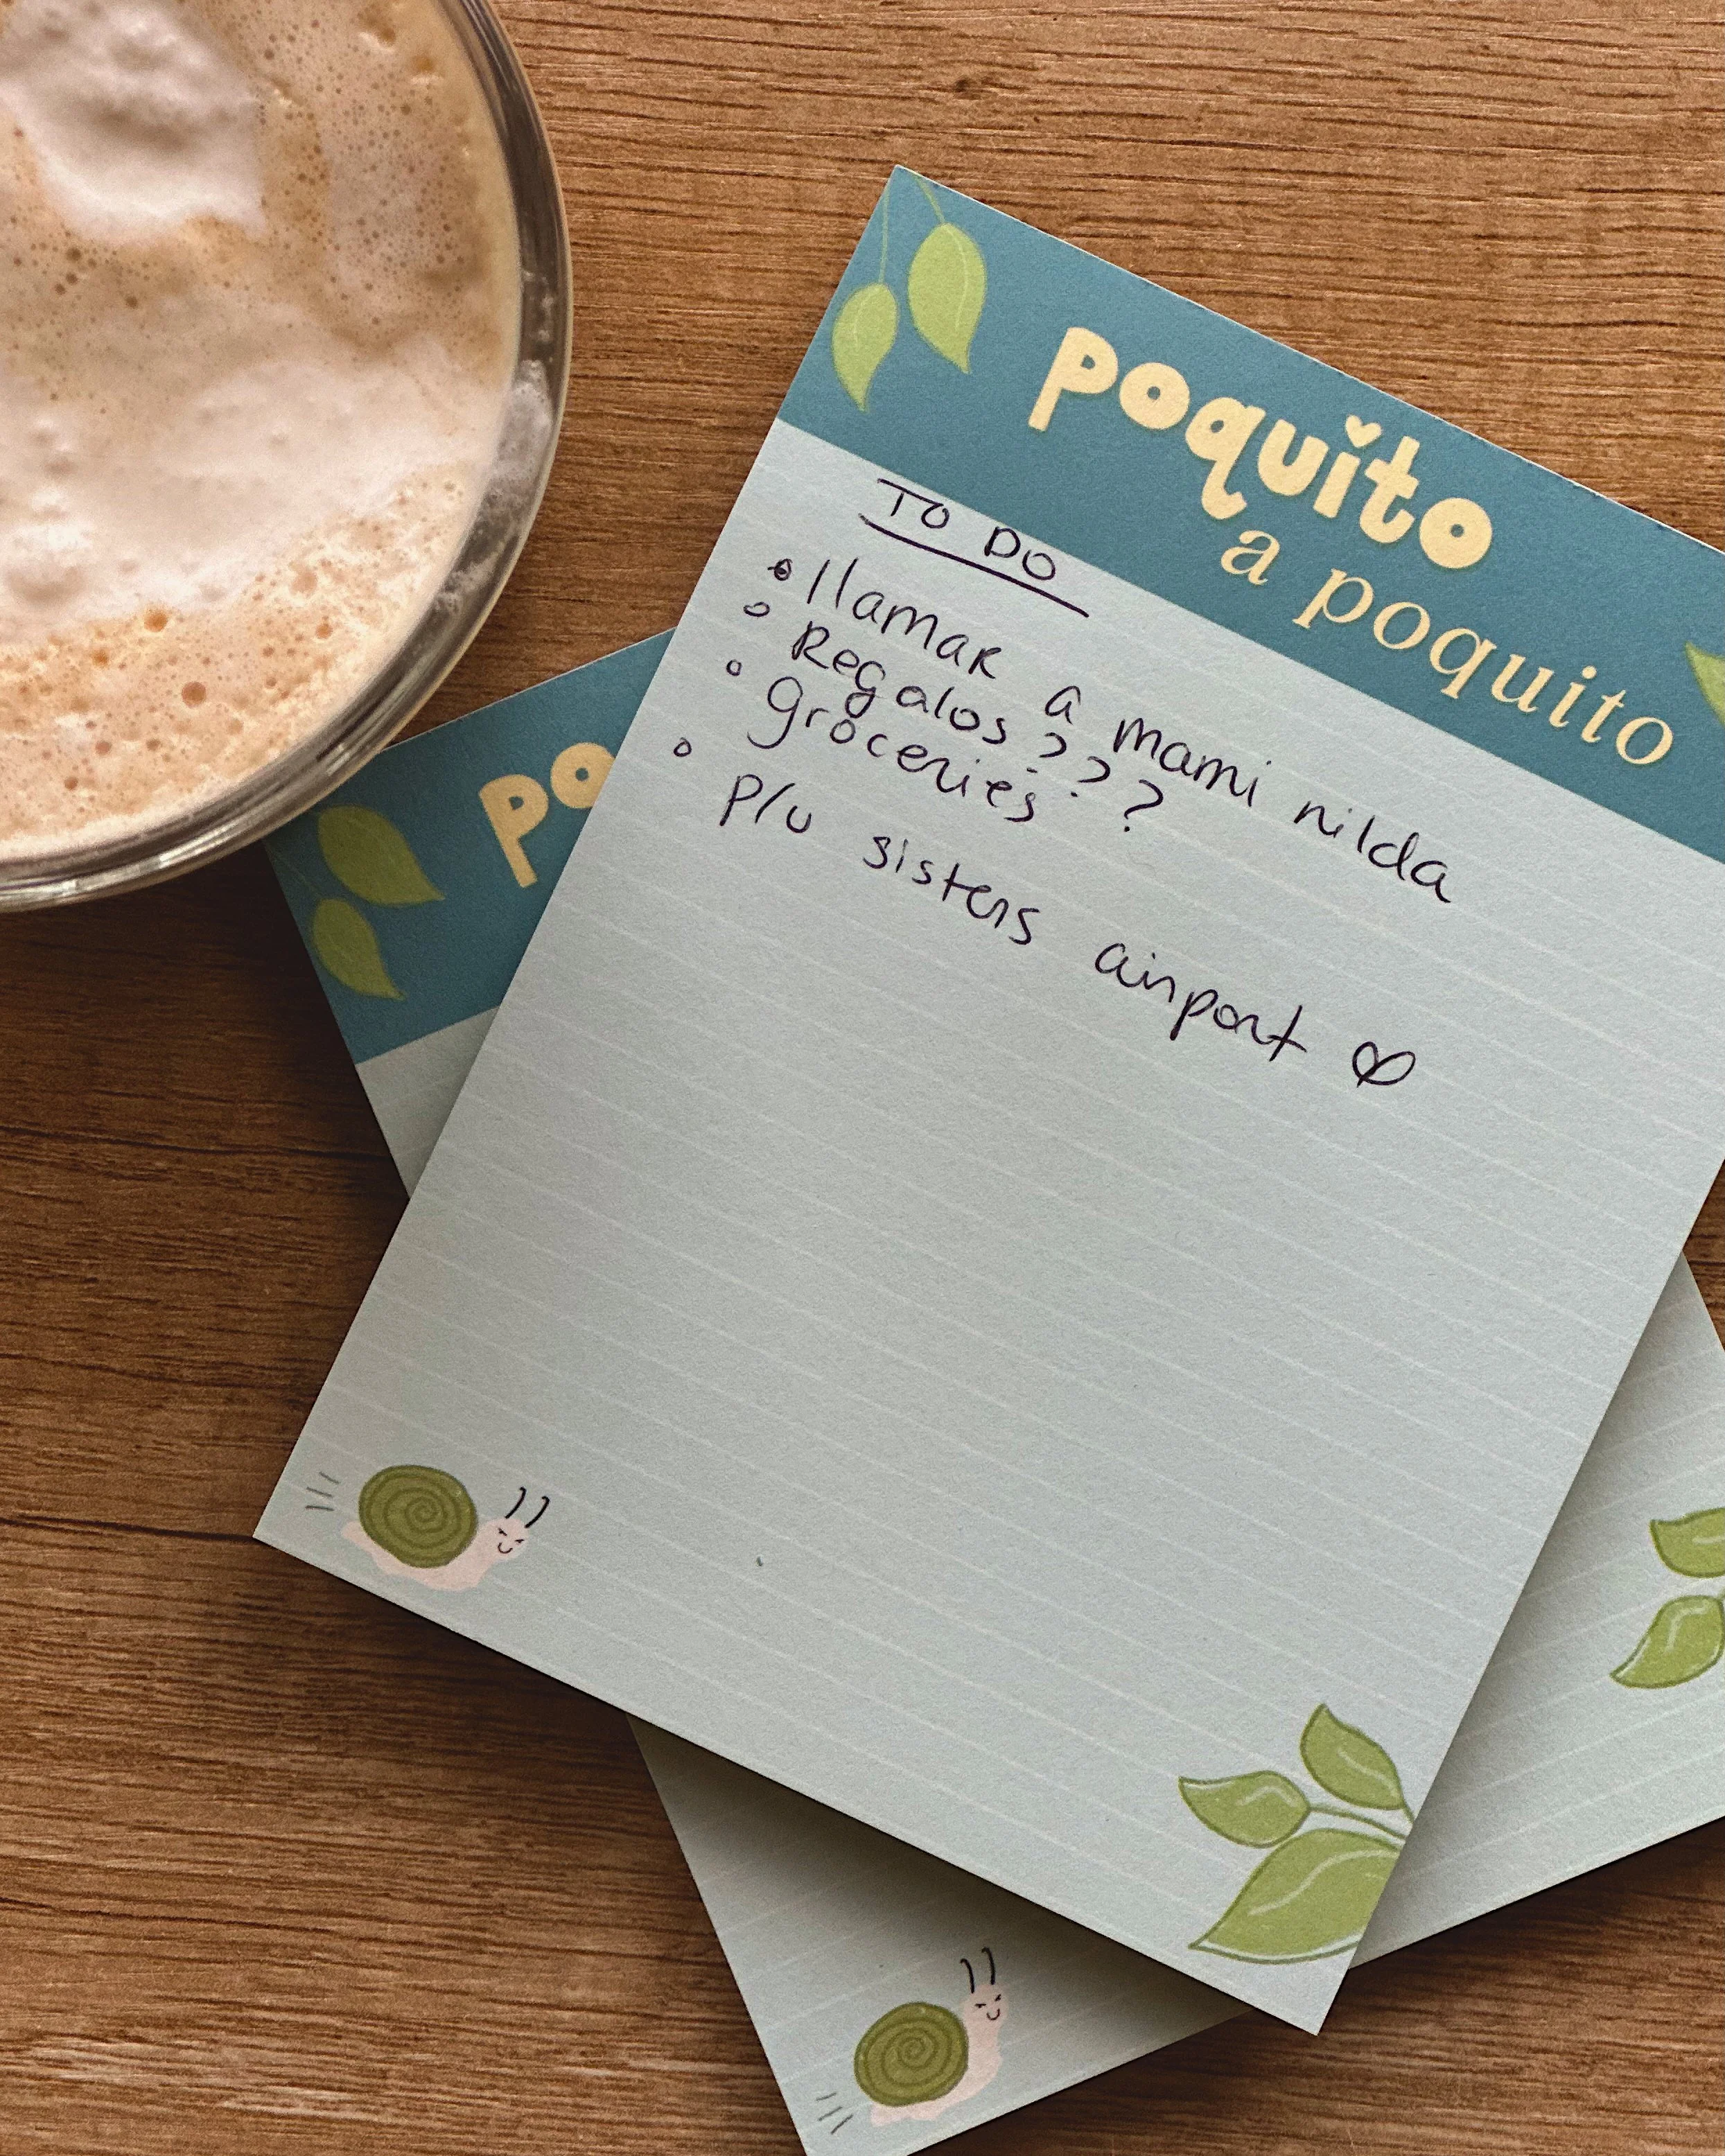 poquito
a poquito
TO DO
llamar a mami nilda
Regalos???
groceries
p/u sisters airport ♡
po